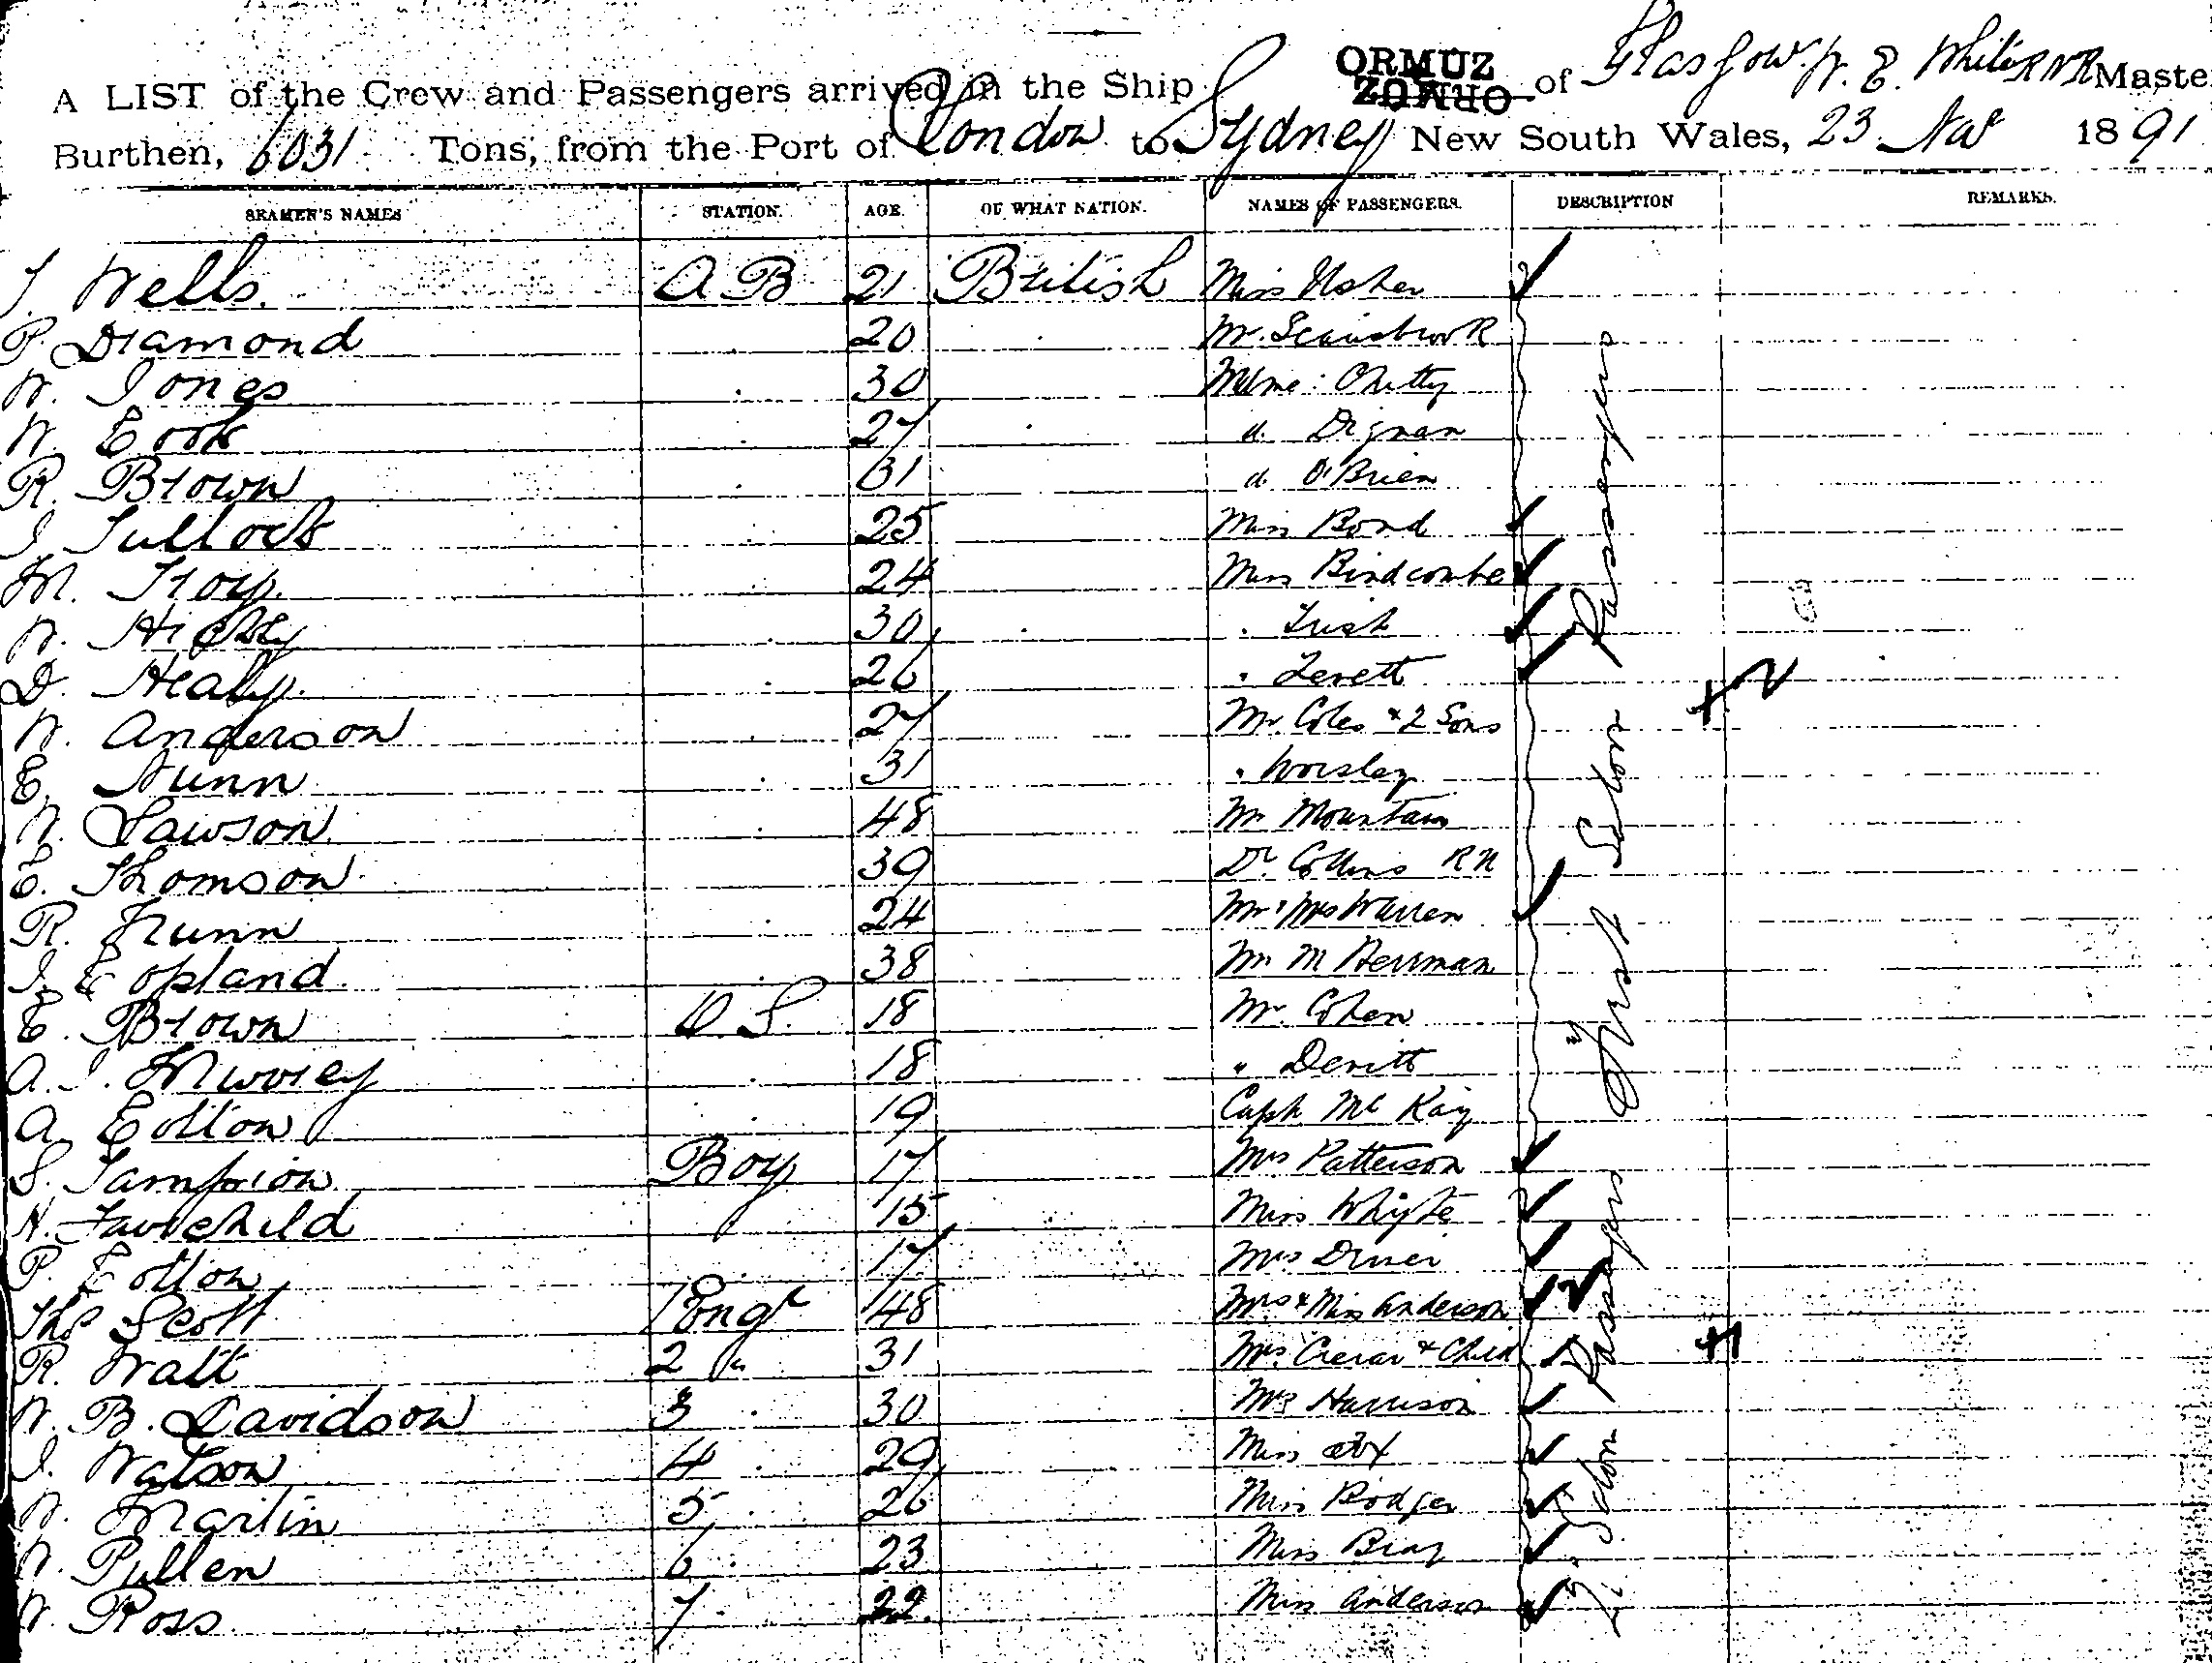 A LIST of the Crew and Passengers arrived in the Ship ORMUZ of Glasgow. W. E. White RNR Master
ORMUZ
Burthen, 6031 Tons, from the Port of London to Sydney New South Wales, 23 Nov 1891
SEAMEN'S NAMES STATION. AGE. OF WHAT NATION. NAMES OF PASSENGERS. DESCRIPTION REMARKS.
J. Wells. A B 21 British Miss Usher
P. Diamond 20 Mr.
W. Jones 30 Mdme. Chitty
W. Cook 27 d. Dignan
R. Brown 31 d. O'Brien
J. Tullock 25 Miss Bond
M. Troy. 24 Miss Bindcombe
W. 30 .
D. Healy. 26 " Levett
W. Anderson 27 Mr. Coles & 2 Sons
E. Nunn 31 " Worsley
W. Lawson 48 Mr Mountain
E. Thomson 39 Dr. Collins RN
R. Nunn 24 Mr & Mrs Warren
J. Copland 38 Mr M Herrman
E. Brown O.S. 18 Mr. Cohen
A. J. 18 " Devitt
A. Cotton 19 Capt. Mc Kay
S. Tampion Boy 17 Mrs Patterson
H. Fairchild 15 Miss Whyte
P. Cotton 17 Mrs Driver
Thos Scott 1 Engr 48 Mrs & Miss Anderson
R. Watt 2 " 31 Mrs. Crerar & Child
W. B. Davidson 3 30 Mrs Harrison
J. Watson 4 29 Miss
W. Martin 5 26 Miss Rodger
W. Pullen 6 23 Miss Bray
W. Ross 7 22 Miss Anderson
First Saloon Passengers
2. Saloon Passengers